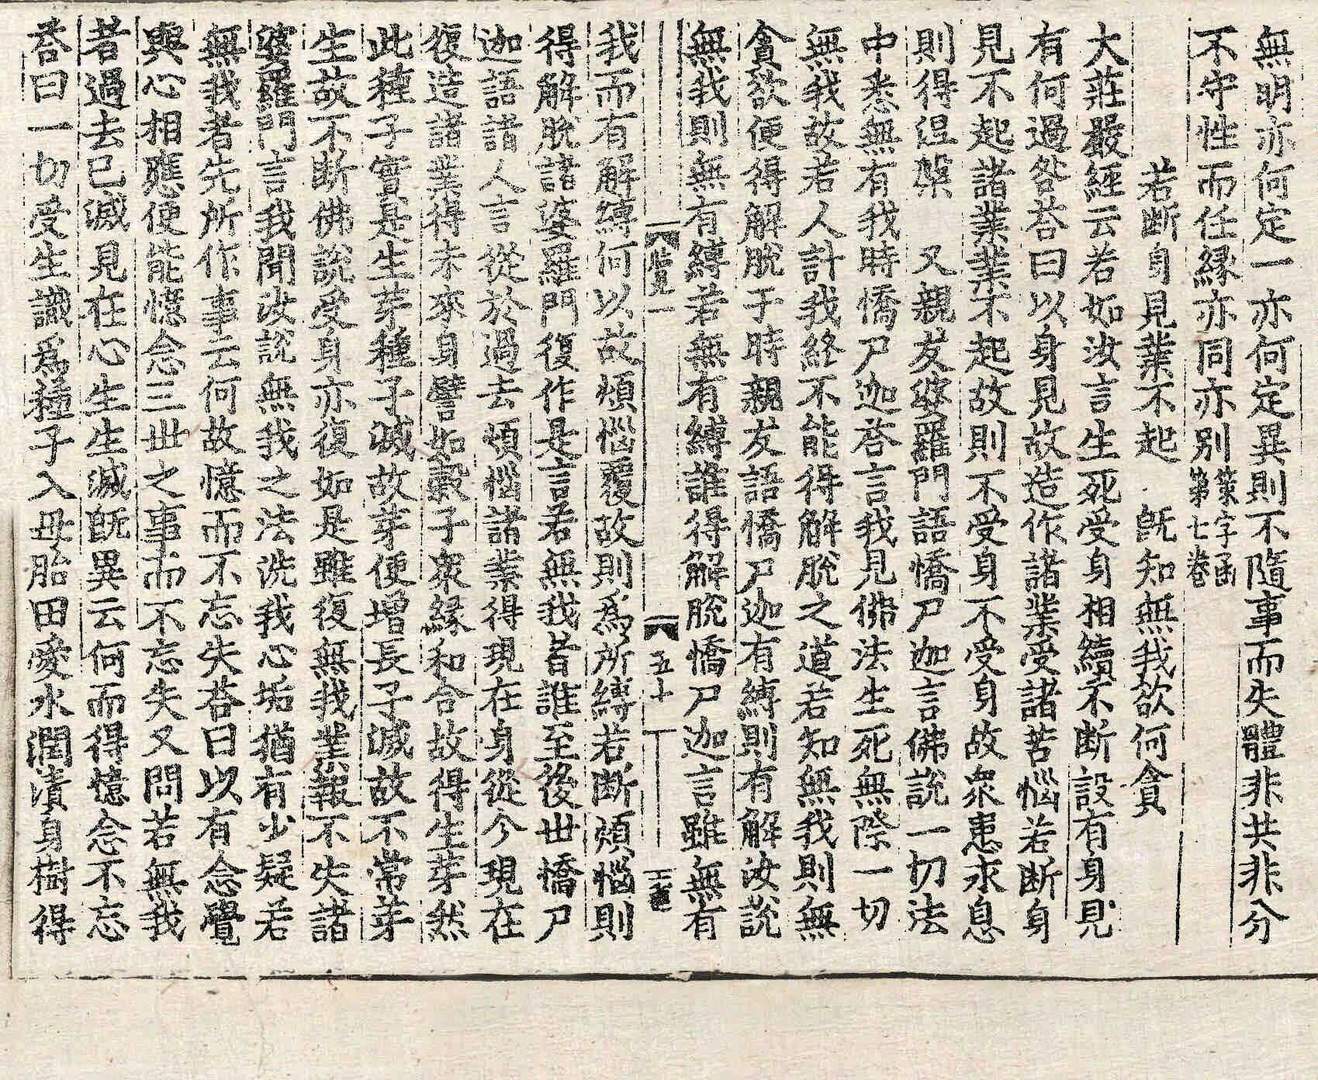 無明亦何定一亦何定異則不隨事而失體非共非分
不守性而任緣亦同亦別策字函第七卷
若断身見業不起 旣知無我欲何貪
大莊嚴經云若如汝言生死受身相續不断設有身見
有何過咎荅曰以身見故造作諸業受諸苦惱若断身
見不起諸業業不起故則不受身不受身故衆患永息
則得涅槃 又親友婆羅門語憍尸迦言佛説一切法
中悉無有我時憍尸迦荅言我見佛法生死無際一切
無我故若人計我終不能得解脫之道若知無我則無
貪欲便得解脫于時親友語憍尸迦有縛則有解汝説
無我則無有縛若無有縛誰得解脫憍尸迦言雖無有
五十
我而有解縛何以故煩惱覆故則爲所縛若断煩惱則
得解脫諸婆羅門復作是言若無我者誰至後世憍尸
迦語諸人言從於過去煩惱諸業得現在身從今現在
復造諸業得未來身譬如穀子衆緣和合故得生芽然
此種子實是生芽種子滅故芽便增長子滅故不常芽
生故不断佛説受身亦復如是雖復無我業報不失諸
婆羅門言我聞汝説無我之法洗我心垢猶有少疑若
無我者先所作事云何故憶而不忘失荅曰以有念覺
與心相應便能憶念三世之事而不忘失又問若無我
者過去已滅見在心生生滅旣異云何而得憶念不忘
荅曰一切受生識爲種子入母胎田愛水潤漬身樹得